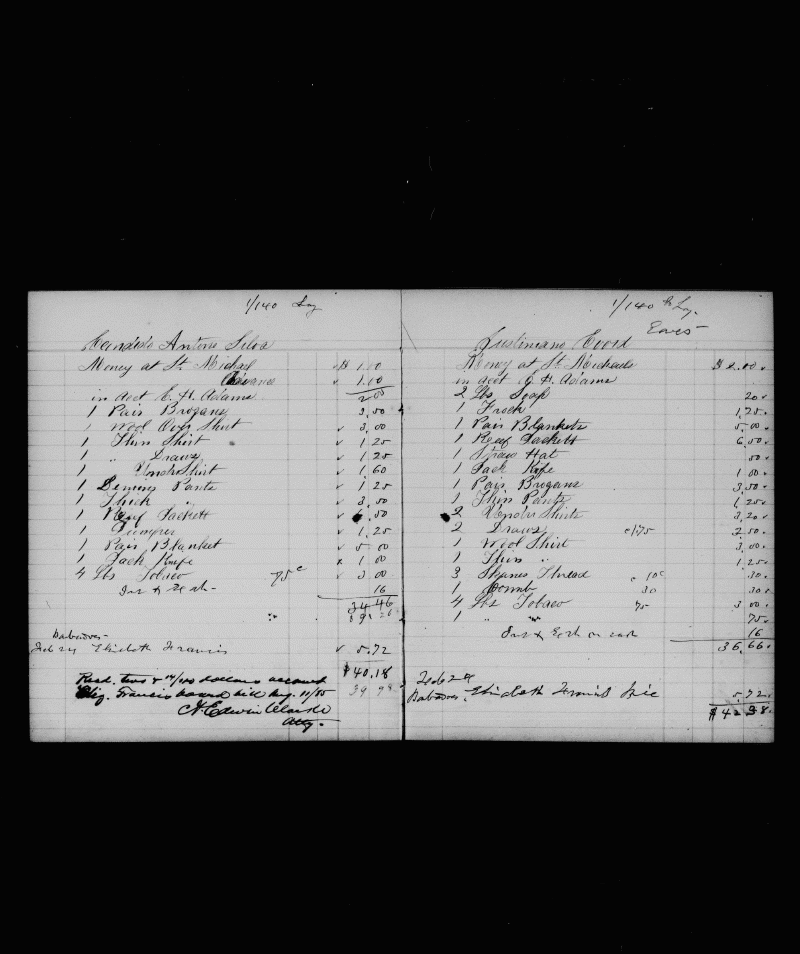 1/140 Lay
Candido Antone Silva
Money at St. Michael $ 1.00
1.10
in acct E. H. Adams 2 00
1 Pair Brogans 3.50
1 Wool Over Shirt 3.00
1 Thin Shirt 1.25
1 " Draws 1.25
1 UnderShirt 1.60
1 Demins Pants 1.25
1 Thick " 3.50
1 Reef Jackett 6.50
1 Jumper 1.25
1 Pair Blanket 5.00
1 Jack Knife 1.00
4 Lbs Tobaco 75c 3.00
Ins & 16
34 46
Barbadoes
Feb 24 Elizabeth Francis 5.72
$40.18
39 98
Recd. two & /100 dollars account
Eliz. Francis board bill Aug. 11/85
Atty.
1/140 th Lay.
Justiniano
Money at St. Michaels $ 2.00
in acct E. H. Adams
2 Lbs Soap 20
1 Frock 1,25
1 Pair Blankets 5.00
1 Reef Jackett 6,50
1 Straw Hat 50
1 Jack Knife 1 00
1 Pair Brogans 3.50
1 Thin Pants 1,25
2 Under Shirts 3,20
2 Draws 2.50
1 Wool Shirt 3,00
1 Thin " 1,25
3 Skanes Thread c 10c 30
1 Comb 30 30
4 Lbs Tobaco 75 3 00
1 " " 75
Ins & on cash 16
36,66
Feb 24
Barbadoes, Elizabeth 5.72
$42 38